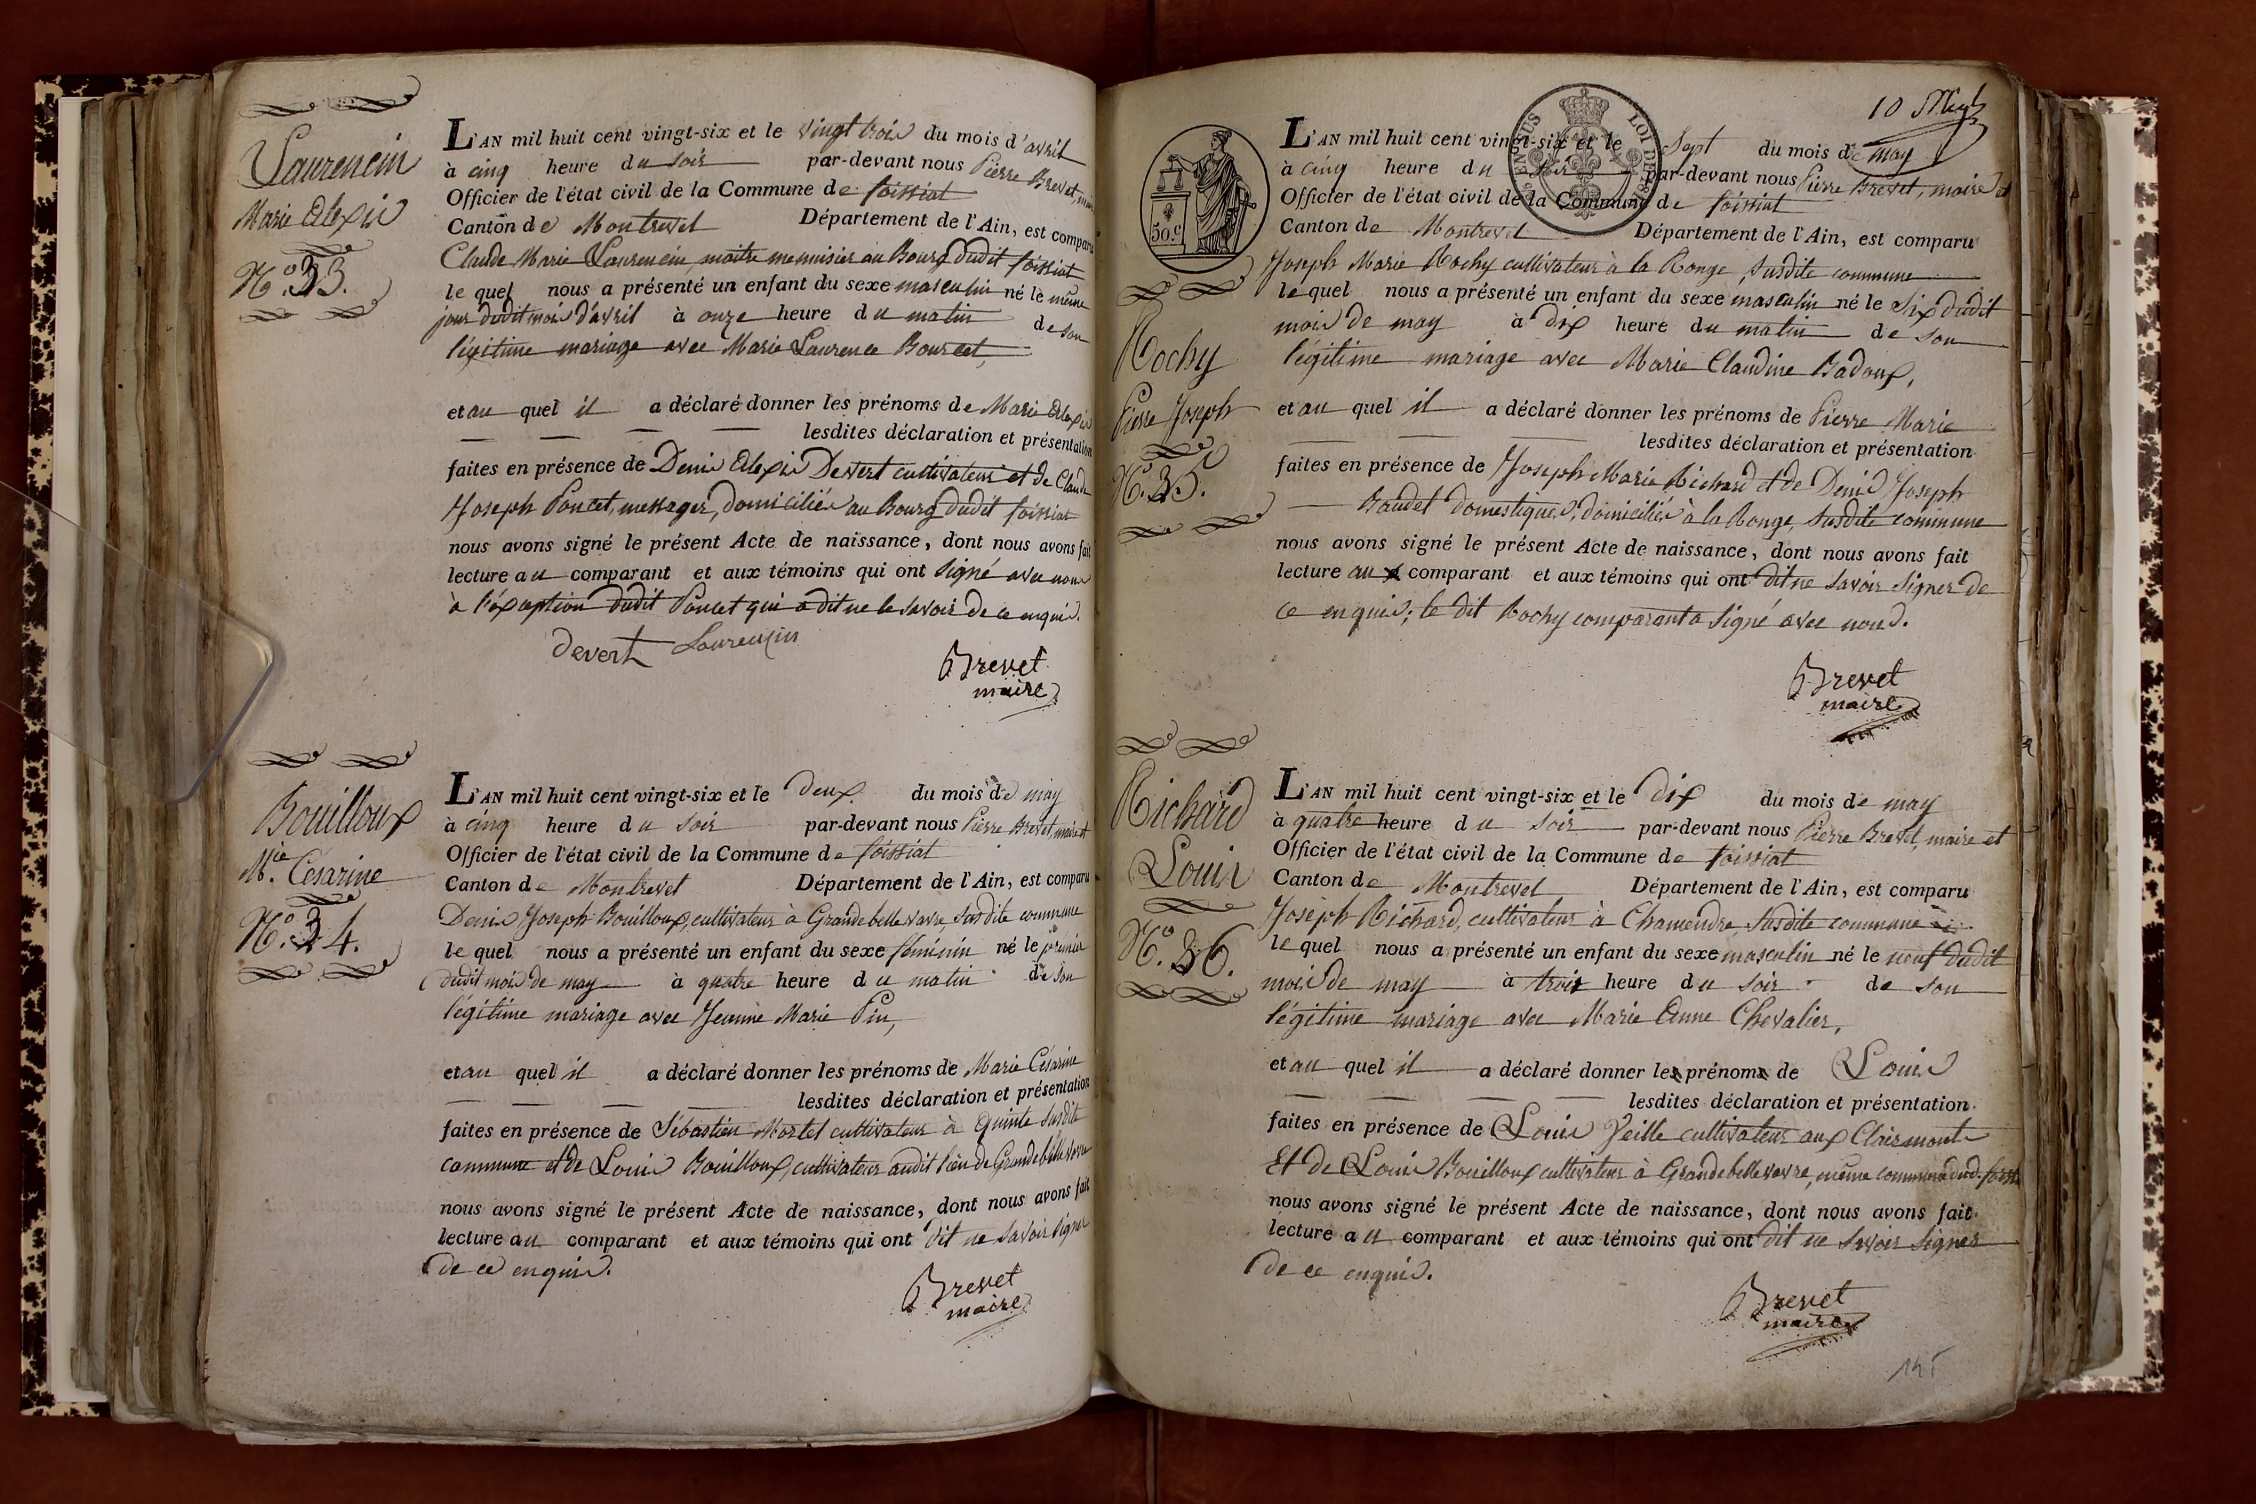 Laurencin
Marie Alexis
N.º 33.
L'AN mil huit cent vingt-six et le vingt trois du mois d'avril
à cinq heure du soir par-devant nous Pierre Brevet, maire
Officier de l'état civil de la Commune de foissiat
Canton de Montrevel Département de l'Ain, est comparu
Claude Marie Laurencin, maitre menuisier au Bourg dudit foissiat
lequel nous a présenté un enfant du sexe masculin né le même
jour dudit mois d'avril à onze heure du matin de son
légitime mariage avec Marie Laurence Bourcet,
et au quel il a déclaré donner les prénoms de Marie Alexis
lesdites déclaration et présentation
faites en présence de Denis Alexis Devert cultivateur et de Claude
Joseph Poncet, messager, domiciliés au Bourg dudit foissiat
nous avons signé le présent Acte de naissance, dont nous avons fait
lecture au comparant et aux témoins qui ont signé avec nous
à l'éxception dudit Poncet qui a dit ne le savoir de ce enquis.
Devert Laurencin
Brevet
maire
Bouilloux
M.ie Césarine
N.º 34.
L'AN mil huit cent vingt-six et le deux du mois de may
à cinq heure du soir par-devant nous Pierre Brevet, maire et
Officier de l'état civil de la Commune de foissiat
Canton de Montrevel Département de l'Ain, est comparu
Denis Joseph Bouilloux, cultivateur à Grandebellevavre, susdite commune
lequel nous a présenté un enfant du sexe féminin né le premier
dudit mois de may à quatre heure du matin de son
légitime mariage avec Jeanne Marie Pin,
et au quel il a déclaré donner les prénoms de Marie Césarine
lesdites déclaration et présentation
faites en présence de Sébastien Mortel cultivateur à Quinte susdite
commune et de Louis Bouilloux, cultivateur audit lieu de Grandebellevavre
nous avons signé le présent Acte de naissance, dont nous avons fait
lecture au comparant et aux témoins qui ont dit ne savoir signer
de ce enquis.
Brevet
maire
10
50.c
LOI DE
Rochy
Pierre Joseph
N.º 35.
L'AN mil huit cent vingt-six et le Sept du mois de may
à cinq heure du soir par-devant nous Pierre Brevet, maire et
Officier de l'état civil de la Commune de foissiat
Canton de Montrevel Département de l'Ain, est comparu
Joseph Marie Rochy cultivateur à la Ronge, susdite commune
lequel nous a présenté un enfant du sexe masculin né le six dudit
mois de may à dix heure du matin de son
légitime mariage avec Marie Claudine Badoux,
et au quel il a déclaré donner les prénoms de Pierre Marie
lesdites déclaration et présentation
faites en présence de Joseph Marie Richard et de Denis Joseph
Baudet domestiques, domiciliés à la Ronge, susdite commune
nous avons signé le présent Acte de naissance, dont nous avons fait
lecture au comparant et aux témoins qui ont dit ne savoir signer de
ce enquis; le dit Rochy comparant a signé avec nous.
Brevet
maire
Richard
Louis
N.º 36.
L'AN mil huit cent vingt-six et le dix du mois de may
à quatre heure du soir par-devant nous Pierre Brevet, maire et
Officier de l'état civil de la Commune de foissiat
Canton de Montrevel Département de l'Ain, est comparu
Joseph Richard, cultivateur à Chamendre, susdite commune
lequel nous a présenté un enfant du sexe masculin né le neuf dudit
mois de may à trois heure du soir de son
légitime mariage avec Marie Anne Chevalier,
et au quel il a déclaré donner les prénoms de Louis
lesdites déclaration et présentation
faites en présence de Louis Veille cultivateur aux Clairmonts
Et de Louis Bouilloux cultivateur à Grandebellevavre, même commune dud. foissiat
nous avons signé le présent Acte de naissance, dont nous avons fait
lecture au comparant et aux témoins qui ont dit ne savoir signer
de ce enquis.
Brevet
maire